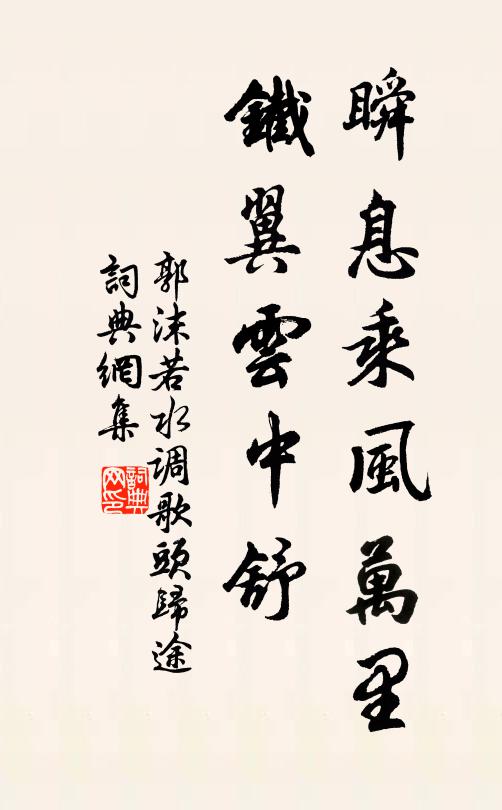 瞬息乘風萬里
鐵翼雲中舒
郭沫若水调歌頭歸途
詞典網集
詞典網印